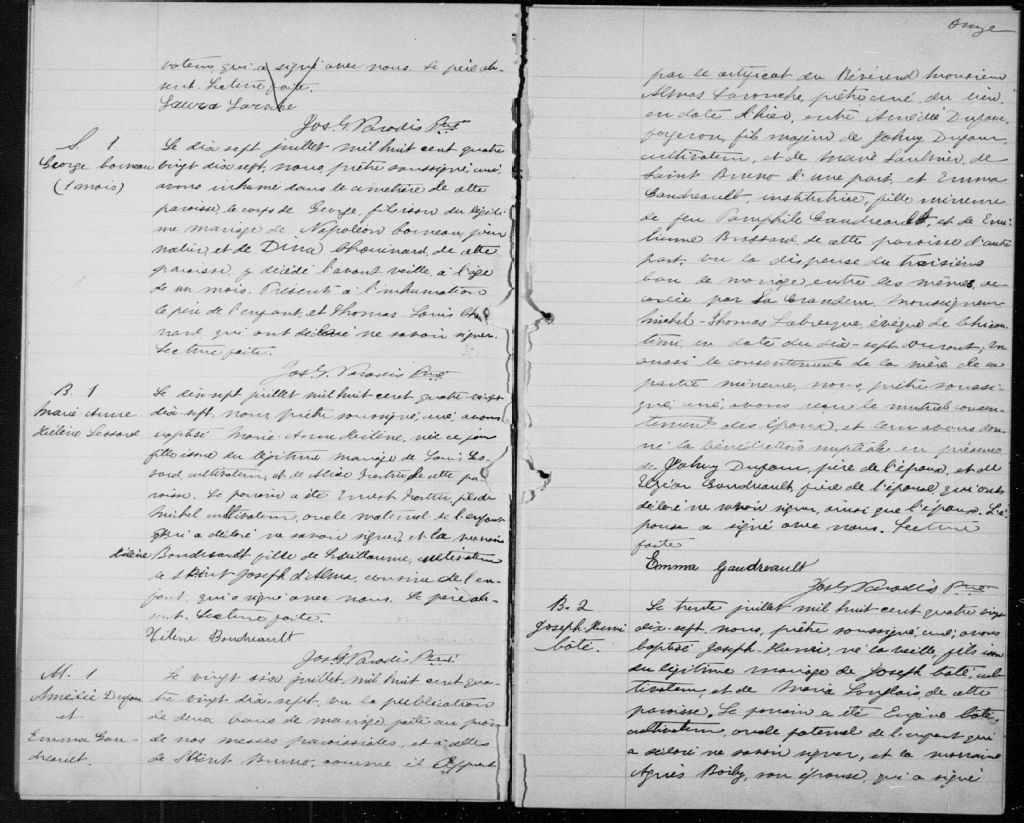 vateur, qui a signé avec nous. Le père ab-
sent. Lecture faite.
Laura
Jos. G. Paradis Ptre
S. 1
George Comeau
(1 mois)
Le dix sept juillet mil huit cent quatre
vingt dix sept, nous, prêtre soussigné, curé,
avons inhumé dans le cimetière de cette
paroisse, le corps de George, fils issu du légiti-
me mariage de Napoléon Comeau, jour
nalier, et de Dina Chouinard, de cette
paroisse, y décédé l'avant veille, à l'âge
de un mois. Présents à l'inhumation
le père de l'enfant, et Thomas Louis Choui
nard, qui ont déclaré ne savoir signer.
Lecture faite.
Jos. G. Paradis Ptre
B. 1
Marie-Anne
Hélène Lessard
Le dix sept juillet mil huit cent quatre vingt
dix sept, nous, prêtre soussigné, curé, avons
baptisé Marie-Anne Hélène, née ce jour
fille issue du légitime mariage de Louis Les
sard, cultivateur, et de Alice Fortin de cette pa
roisse. Le parrain a été Ernest Fortin, fils de
Michel cultivateur, oncle maternel de l'enfant
qui a déclaré ne savoir signer, et la marraine
Hélène Boudreault fille de Guillaume, cultivateur
de Saint Joseph d'Alma, cousine de l'en-
fant, qui a signé avec nous. Le père ab-
sent. Lecture faite.
Hélène Boudreault
Jos. G. Paradis Ptre
M. 1
Amédée Dufour
et
Emma Gau-
dreault.
Le vingt six juillet, mil huit cent qua-
tre vingt dix-sept, vu la publication
de deux bans de mariage faite au prône
de nos messes paroissiales, et à celles
de Saint Bruno, comme il appert
Onze
par le certificat du Révérend Monsieur
Almas Larouche, prêtre curé du lieu,
en date d'hier, entre Amédée Dufour,
forgeron, fils majeur de Johny Dufour
cultivateur, et de Marie Saulnier, de
Saint Bruno d'une part, et Emma
Gaudreault, institutrice, fille mineure
de feu Pamphile Gaudreault, et de Emi-
lienne Brassard de cette paroisse d'autre
part; vu la dispense du troisième
ban de mariage entre les mêmes, ac-
cordée par Sa Grandeur Monseigneur
Michel-Thomas Labrecque, évêque de Chicou
timi, en date du dix-sept courant; vu
aussi le consentement de la mère de la
partie mineure, nous, prêtre soussi-
gné, curé, avons reçu le mutuel consen-
tement des époux, et leur avons don-
né la bénédiction nuptiale en présence
de Johny Dufour, père de l'époux, et de
Elzéar Gaudreault, frère de l'épouse, qui ont
déclaré ne savoir signer, ainsi que l'époux. L'é-
pouse a signé avec nous. Lecture
faite
Emma Gaudreault
Jos. G. Paradis Ptre
B. 2
Joseph-Henri
Côté.
Le trente juillet mil huit cent quatre vingt
dix-sept, nous, prêtre soussigné, curé, avons
baptisé Joseph-Henri, né la veille, fils issu
du légitime mariage de Joseph Côté, cul
tivateur, et de Maria Langlais, de cette
paroisse. Le parrain a été Eugène Côté,
cultivateur, oncle paternel de l'enfant qui
a déclaré ne savoir signer, et la marraine
Agnès Boily, son épouse, qui a signé